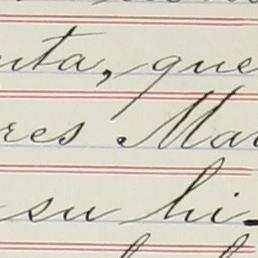 uta, que
res Mar
su hi-